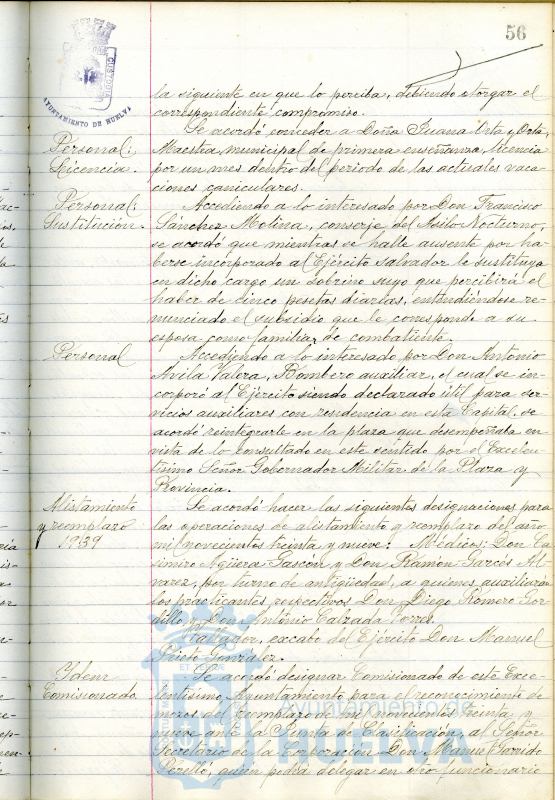 56
AYUNTAMIENTO DE HUELVA
la siguiente en que lo perciba, debiendo otorgar el
correspondiente compromiso.
Personal:
Licencia.
Se acordó conceder a Doña Juana Orta y Orta
Maestra municipal de primera enseñanza, licencia
por un mes dentro del periodo de las actuales vaca-
ciones caniculares.
Personal:
Sustitución.
Accediendo a lo interesado por Don Francisco
Sánchez Molina, conserje del Asilo Nocturno,
se acordó que mientras se halle ausente por ha-
berse incorporado al Ejército Salvador le sustituya
en dicho cargo un sobrino suyo que percibirá el
haber de cinco pesetas diarias, entendiéndose re-
nunciado el subsidio que le corresponde a su
esposa como familiar de combatiente.
Personal
Accediendo a lo interesado por Don Antonio
Avila Valera, Bombero auxiliar, el cual se in-
corporó al Ejército siendo declarado útil para ser-
vicios auxiliares con residencia en esta Capital, se
acordó reintegrarle en la plaza que desempeñaba en
vista de lo consultado en este sentido por el Excelen-
tísimo Señor Gobernador Militar de la Plaza y
Provincia.
Alistamiento
y reemplazo
1939
Se acordó hacer las siguientes designaciones para
las operaciones de alistamiento y reemplazo del año
mil novecientos treinta y nueve: Médicos: Don Ca-
simiro Agüera Gascón y Don Ramón Garcés Al-
varez, por turno de antigüedad, a quienes auxiliarán
los practicantes respectivos Don Diego Romero Gor-
dillo y Don Antonio Calzada Torres.
Tallador, excabo del Ejército Don Manuel
Prieto González.
Idem
Comisionado
Se acordó designar Comisionado de este Exce-
lentísimo Ayuntamiento para el reconocimiento de
mozos del reemplazo de mil novecientos treinta y
nueve ante la Junta de Clasificación, al Señor
Secretario de la Corporación Don Manuel Garrido
Perelló, quien podrá delegar en otro funcionario
Ayuntamiento de
HUELVA